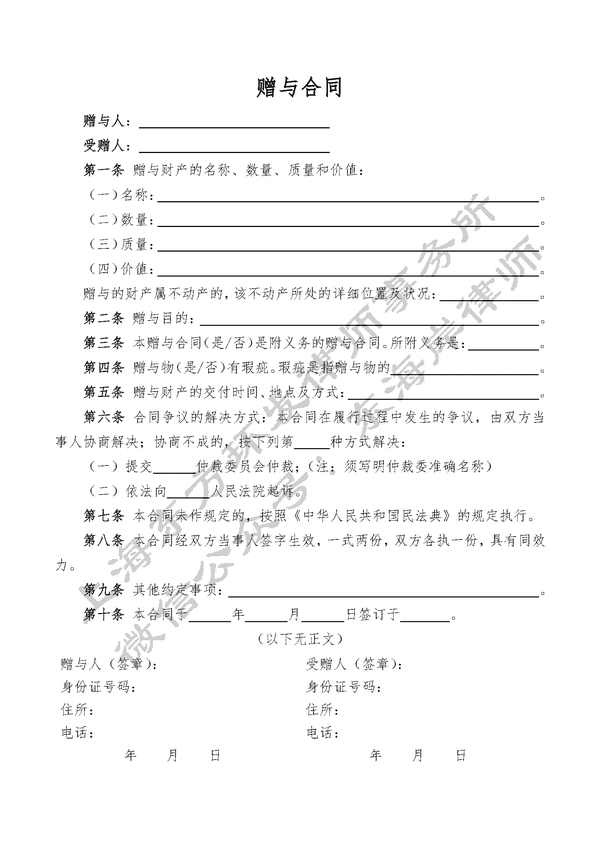 赠与合同
赠与人：
受赠人：
第一条 赠与财产的名称、数量、质量和价值：
（一）名称：。
（二）数量：。
（三）质量：。
（四）价值：。
赠与的财产属不动产的，该不动产所处的详细位置及状况：。
第二条 赠与目的：。
第三条 本赠与合同（是/否）是附义务的赠与合同。所附义务是：。
第四条 赠与物（是/否）有瑕疵。瑕疵是指赠与物的。
第五条 赠与财产的交付时间、地点及方式：。
第六条 合同争议的解决方式：本合同在履行过程中发生的争议，由双方当
事人协商解决；协商不成的，按下列第____种方式解决：
（一）提交____仲裁委员会仲裁；（注：须写明仲裁委准确名称）
（二）依法向____人民法院起诉。
第七条 本合同未作规定的，按照《中华人民共和国民法典》的规定执行。
第八条 本合同经双方当事人签字生效，一式两份，双方各执一份，具有同效
力。
第九条 其他约定事项：。
第十条 本合同于____年____月____日签订于____。
（以下无正文）
赠与人（签章）： 受赠人（签章）：
身份证号码： 身份证号码：
住所： 住所：
电话： 电话：
年 月 日 年 月 日
上海东方环发律师事务所
微信公众号：东海岸律师